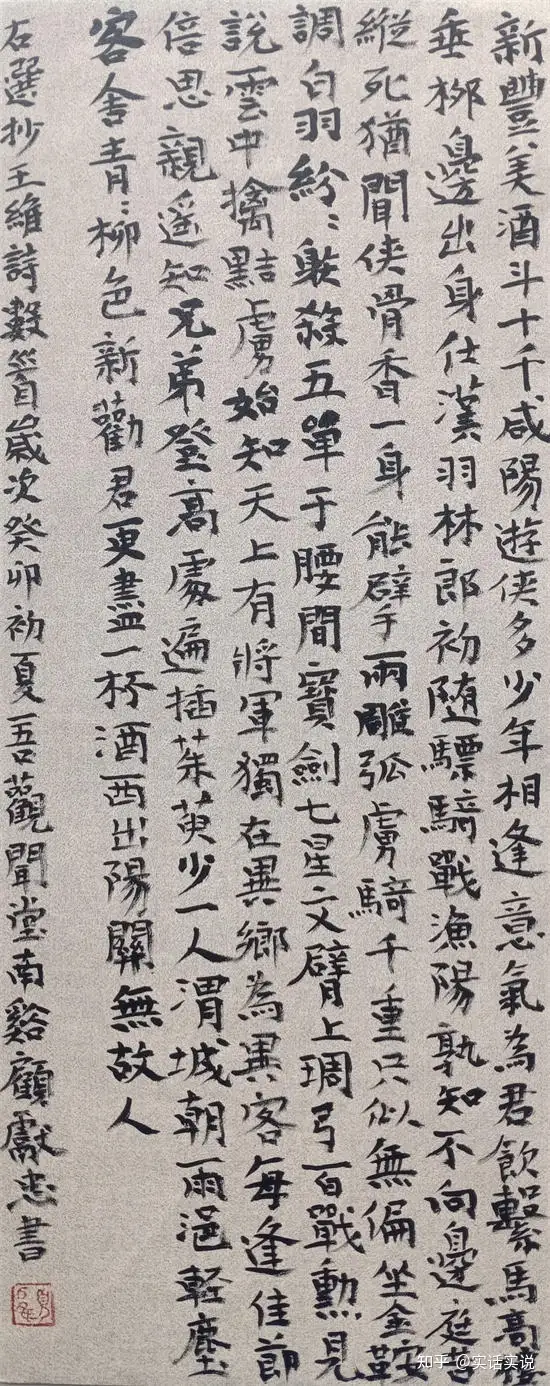 新豐美酒斗十千咸陽遊俠多少年相逢意氣為君飲繫馬高樓
垂柳邊出身仕漢羽林郎初随驃騎戰漁陽孰知不向邊庭苦
縱死猶聞俠骨香一身能擘兩雕弧虜騎千重只似無偏坐金鞍
調白羽紛〻躲殺五單于腰間寶劍七星文臂上琱弓百戰勳見
說雲中擒黠虜始知天上有將軍獨在異鄉為異客每逢佳節
倍思親遥知兄弟登高處遍插茱萸少一人渭城朝雨浥輕塵
客舍青〻柳色新勸君更盡一杯酒西出陽關無故人
右選抄王維詩數首歲次癸卯初夏吾觀聞堂南谿顧獻忠書
知乎 @实话实说